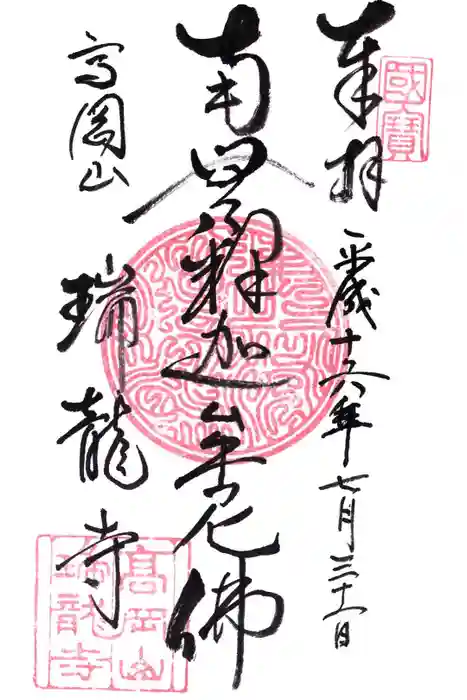 國寶
奉拝
平成十六年七月三十一日
南無釋迦牟尼佛
高岡山
瑞龍寺
高岡山
瑞龍寺